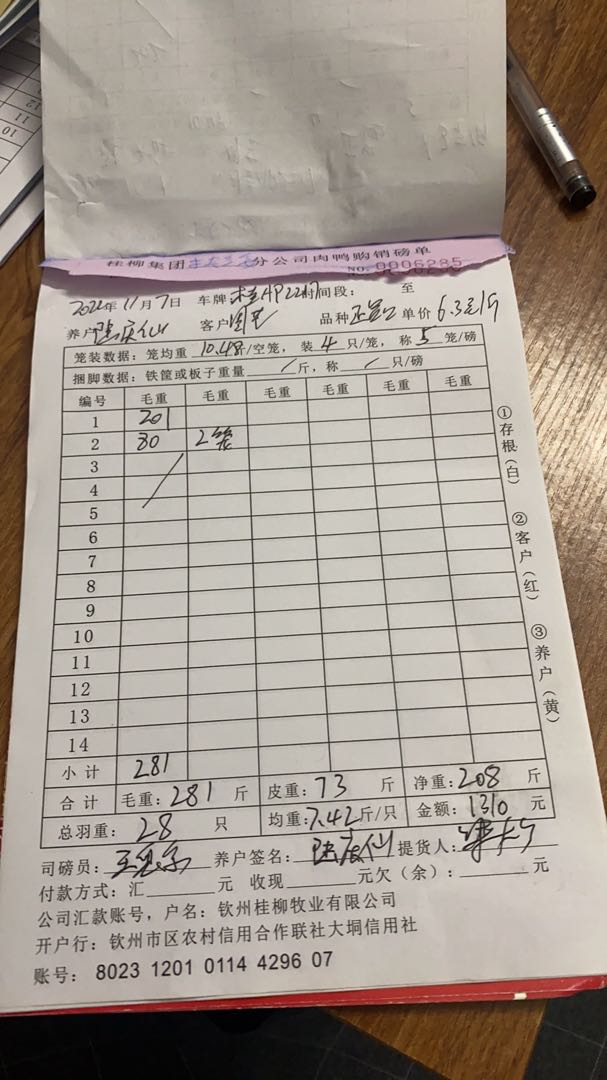 桂柳集团 分公司肉鸭购销磅单
NO. 0006285
2022年11月7日 车牌 时间段： 至
养户 客户 品种 单价 6.3元/斤
笼装数据：笼均重 10.4斤/空笼，装 4 只/笼，称 5 笼/磅
捆脚数据：铁筐或板子重量 / 斤，称 / 只/磅
编号 毛重 毛重 毛重 毛重 毛重 毛重
1 201
2 80 2笼
3
4
5
6
7
8
9
10
11
12
13
14
小计 281
合计 毛重：281 斤 皮重：73 斤 净重：208 斤
总羽重：28 只 均重：7.42斤/只 金额：1310 元
司磅员： 养户签名： 提货人：
付款方式：汇 元 收现 元欠（余）： 元
公司汇款账号，户名：钦州桂柳牧业有限公司
开户行：钦州市区农村信用合作联社大垌信用社
账号：8023 1201 0114 4296 07
①存根（白）
②客户（红）
③养户（黄）